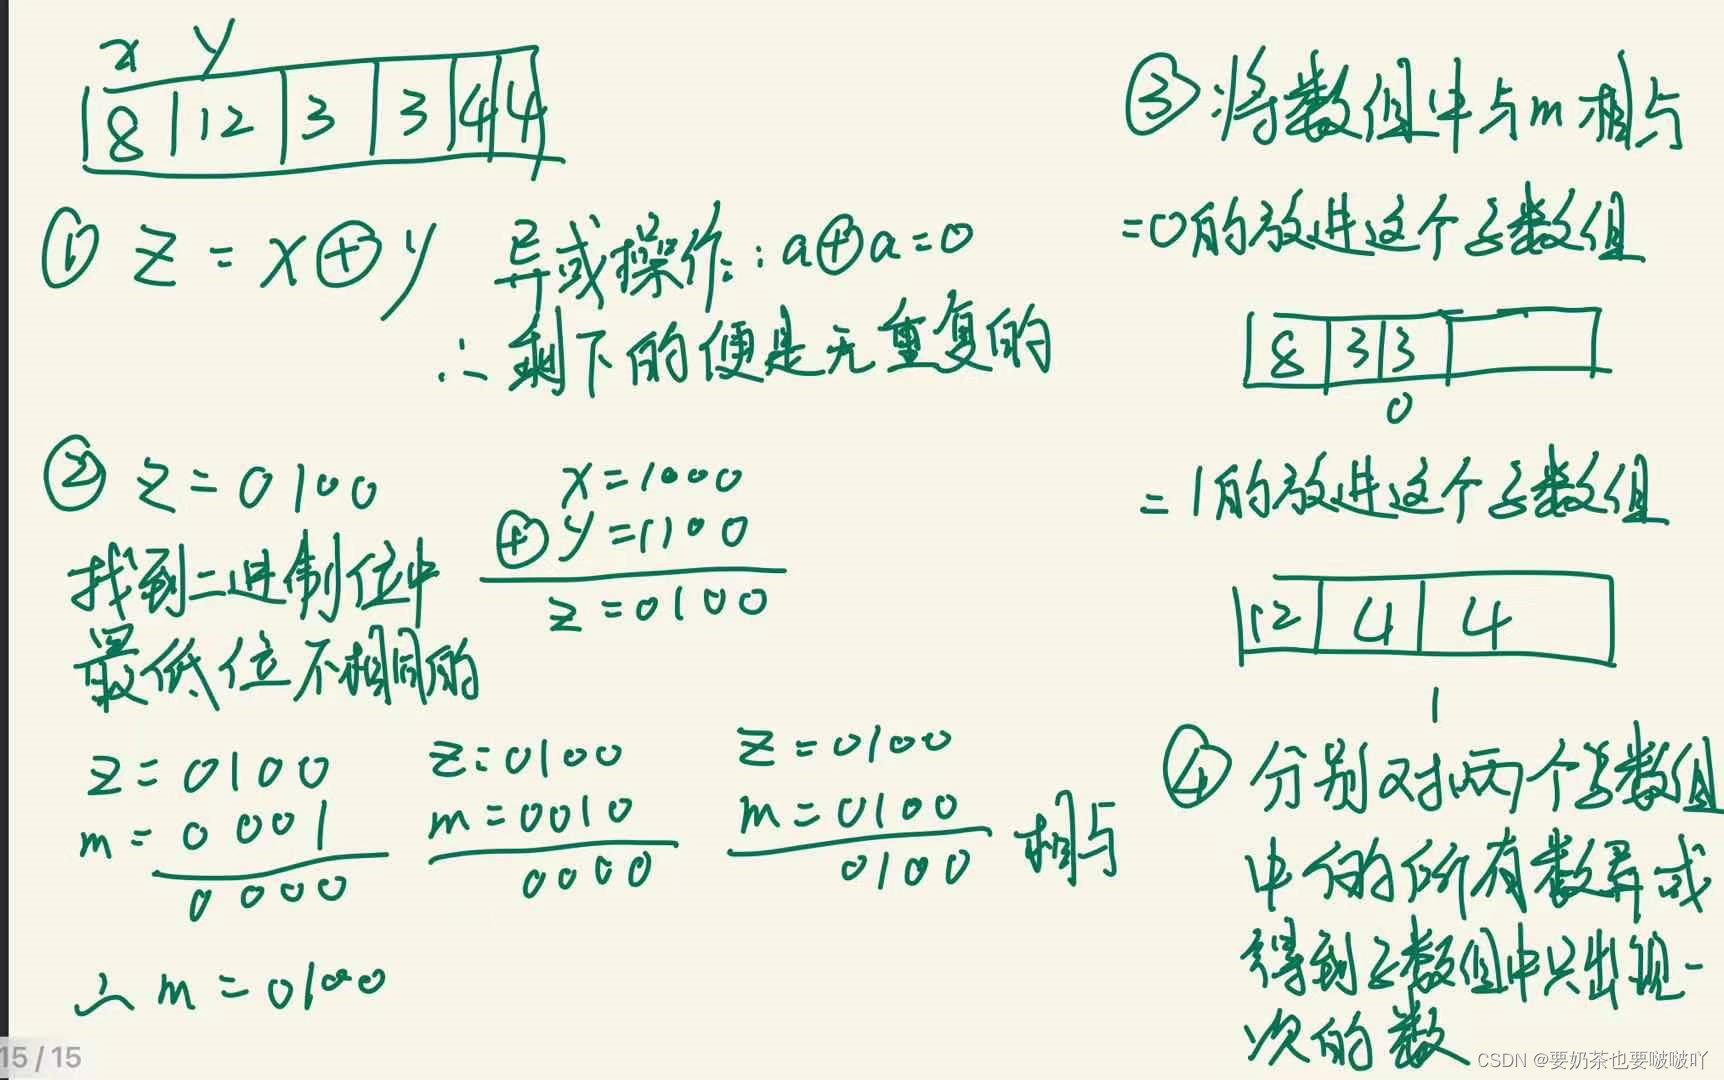 x y
8 12 3 3 4 4
① z = x⊕y 异或操作: a⊕a=0
∴ 剩下的便是无重复的
② z = 0100
x = 1000
⊕ y = 1100
z = 0100
找到二进制位中
最低位不相同的
z = 0100
m = 0001
0000
z: 0100
m = 0010
0000
z = 0100
m = 0100 相与
0100
∴ m = 0100
③ 将数组中与m相与
=0的放进这个子数组
8 3 3
0
=1的放进这个子数组
12 4 4
1
④ 分别对两个子数组
中的所有数异或
得到子数组中只出现一
次的数
15 / 15
CSDN @要奶茶也要啵啵吖